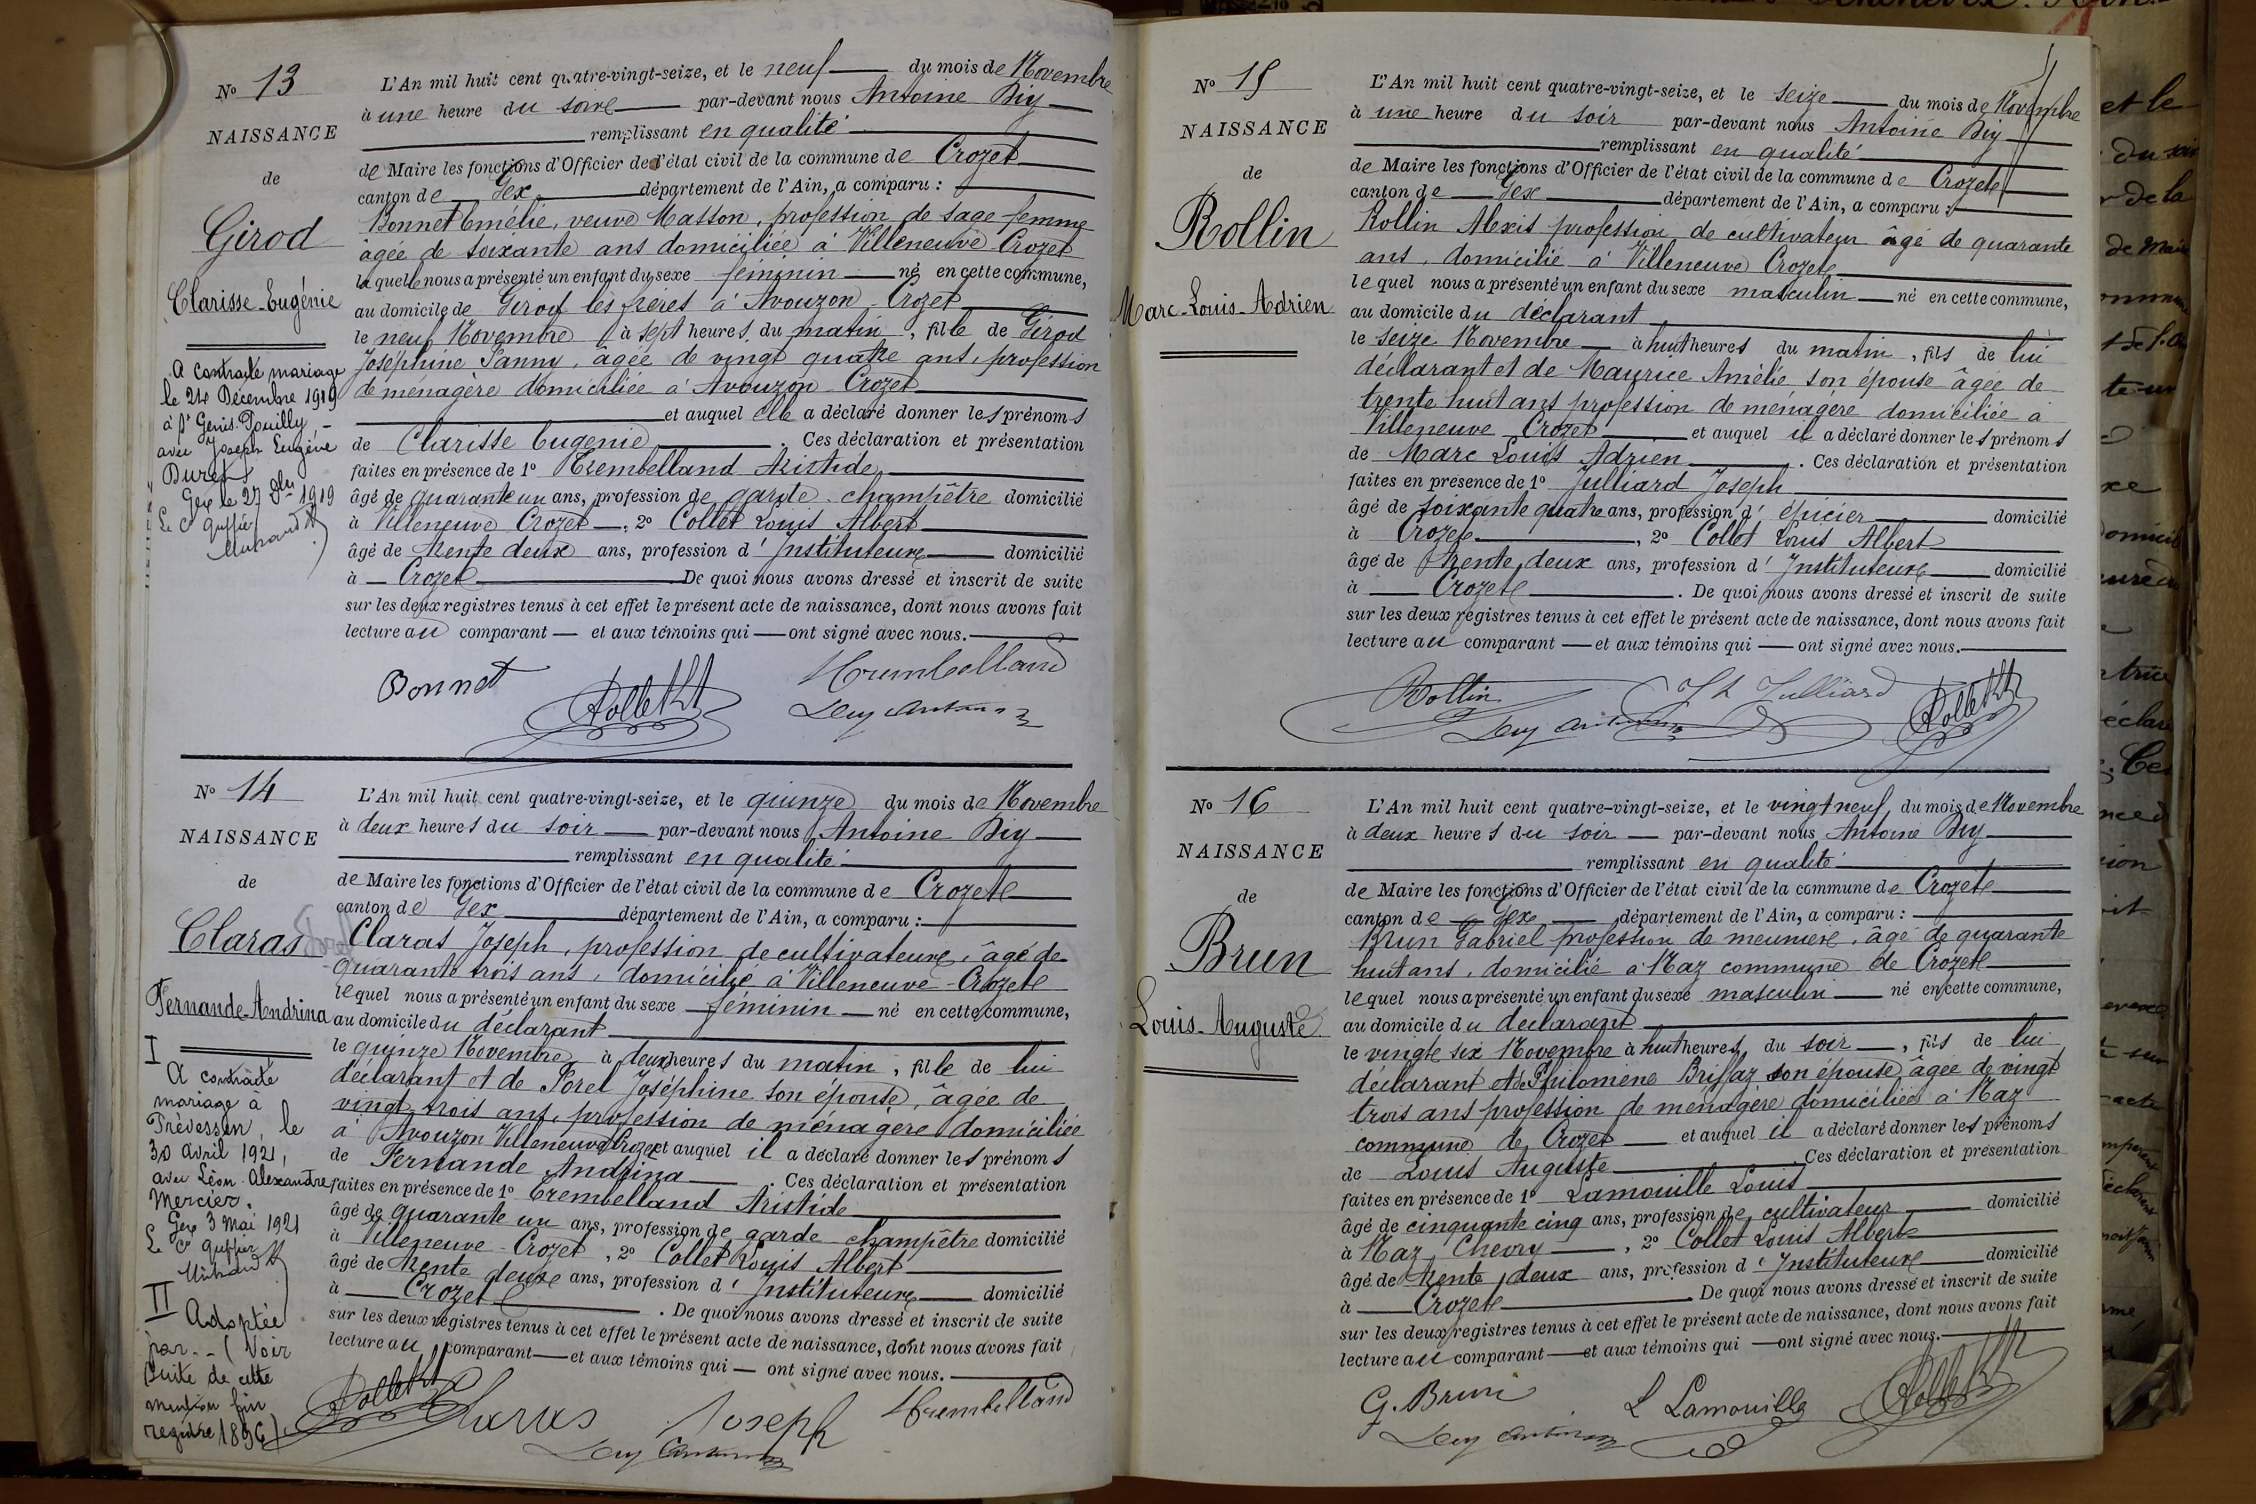 N° 13
NAISSANCE
de
Girod
Clarisse-Eugénie
A contracté mariage
le 24 Décembre 1919
à St Genis-Pouilly
avec Joseph Eugène
Buret
Gex le 27 Xbre 1919
Le Cis Greffier
L'An mil huit cent quatre-vingt-seize, et le neuf du mois de Novembre
à une heure du soir par-devant nous Antoine
remplissant en qualité
de Maire les fonctions d'Officier de l'état civil de la commune de Crozet
canton de Gex département de l'Ain, a comparu :
Bonnet Emélie, veuve Masson, profession de sage-femme
âgée de soixante ans domiciliée à Villeneuve Crozet
laquelle nous a présenté un enfant du sexe féminin né en cette commune,
au domicile de Girod les frères à Avouzon Crozet
le neuf Novembre à sept heures du matin, fille de Girod
Joséphine Fanny, âgée de vingt quatre ans, profession
de ménagère domiciliée à Avouzon Crozet
et auquel elle a déclaré donner les prénoms
de Clarisse Eugénie. Ces déclaration et présentation
faites en présence de 1° Trembelland Aristide
âgé de quarante un ans, profession de garde-champêtre domicilié
à Villeneuve Crozet, 2° Collet Louis Albert
âgé de trente deux ans, profession d'Instituteur domicilié
à Crozet De quoi nous avons dressé et inscrit de suite
sur les deux registres tenus à cet effet le présent acte de naissance, dont nous avons fait
lecture au comparant et aux témoins qui ont signé avec nous.
Bonnet Collet Trembelland
N° 14
NAISSANCE
de
Claras
Fernande-Andrina
I
A contracté
mariage à
Prévessin, le
30 avril 1921,
avec Léon-Alexandre
Mercier.
Gex 3 Mai 1921
Le Cis Greffier
II
Adoptée
par -- (Voir
suite de cette
mention fin
registre 1896).
L'An mil huit cent quatre-vingt-seize, et le quinze du mois de Novembre
à deux heures du soir par-devant nous Antoine
remplissant en qualité
de Maire les fonctions d'Officier de l'état civil de la commune de Crozet
canton de Gex département de l'Ain, a comparu :
Claras Joseph, profession de cultivateur, âgé de
quarante trois ans, domicilié à Villeneuve-Crozet
lequel nous a présenté un enfant du sexe féminin né en cette commune,
au domicile du déclarant
le quinze Novembre à deux heures du matin, fille de lui
déclarant et de Forel Joséphine son épouse, âgée de
vingt trois ans, profession de ménagère domiciliée
à Avouzon Villeneuve Crozet et auquel il a déclaré donner les prénoms
de Fernande Andrina. Ces déclaration et présentation
faites en présence de 1° Trembelland Aristide
âgé de quarante un ans, profession de garde champêtre domicilié
à Villeneuve-Crozet, 2° Collet Louis Albert
âgé de trente deux ans, profession d'Instituteur domicilié
à Crozet. De quoi nous avons dressé et inscrit de suite
sur les deux registres tenus à cet effet le présent acte de naissance, dont nous avons fait
lecture au comparant et aux témoins qui ont signé avec nous.
Collet Claras Joseph Trembelland
N° 15
NAISSANCE
de
Rollin
Marc-Louis-Adrien
L'An mil huit cent quatre-vingt-seize, et le seize du mois de Novembre
à une heure du soir par-devant nous Antoine
remplissant en qualité
de Maire les fonctions d'Officier de l'état civil de la commune de Crozet
canton de Gex département de l'Ain, a comparu :
Rollin Alexis profession de cultivateur âgé de quarante
ans, domicilié à Villeneuve Crozet
lequel nous a présenté un enfant du sexe masculin né en cette commune,
au domicile du déclarant
le seize Novembre à huit heures du matin, fils de lui
déclarant et de Maurice Amélie son épouse âgée de
trente huit ans profession de ménagère domiciliée à
Villeneuve Crozet et auquel il a déclaré donner les prénoms
de Marc Louis Adrien. Ces déclaration et présentation
faites en présence de 1° Julliard Joseph
âgé de soixante quatre ans, profession d'épicier domicilié
à Crozet, 2° Collet Louis Albert
âgé de trente deux ans, profession d'Instituteur domicilié
à Crozet. De quoi nous avons dressé et inscrit de suite
sur les deux registres tenus à cet effet le présent acte de naissance, dont nous avons fait
lecture au comparant et aux témoins qui ont signé avec nous.
Rollin Jh Julliard Collet
N° 16
NAISSANCE
de
Brun
Louis-Auguste
L'An mil huit cent quatre-vingt-seize, et le vingt neuf du mois de Novembre
à deux heures du soir par-devant nous Antoine
remplissant en qualité
de Maire les fonctions d'Officier de l'état civil de la commune de Crozet
canton de Gex département de l'Ain, a comparu :
Brun Gabriel profession de meunier, âgé de quarante
huit ans, domicilié à Naz commune de Crozet
lequel nous a présenté un enfant du sexe masculin né en cette commune,
au domicile du déclarant
le vingt six Novembre à huit heures du soir, fils de lui
déclarant et de Philomène Brissaz son épouse âgée de vingt
trois ans profession de ménagère domiciliée à Naz
commune de Crozet et auquel il a déclaré donner les prénoms
de Louis Auguste. Ces déclaration et présentation
faites en présence de 1° Lamouille Louis
âgé de cinquante cinq ans, profession de cultivateur domicilié
à Naz Chevry, 2° Collet Louis Albert
âgé de trente deux ans, profession d'Instituteur domicilié
à Crozet. De quoi nous avons dressé et inscrit de suite
sur les deux registres tenus à cet effet le présent acte de naissance, dont nous avons fait
lecture au comparant et aux témoins qui ont signé avec nous.
G. Brun L Lamouille Collet